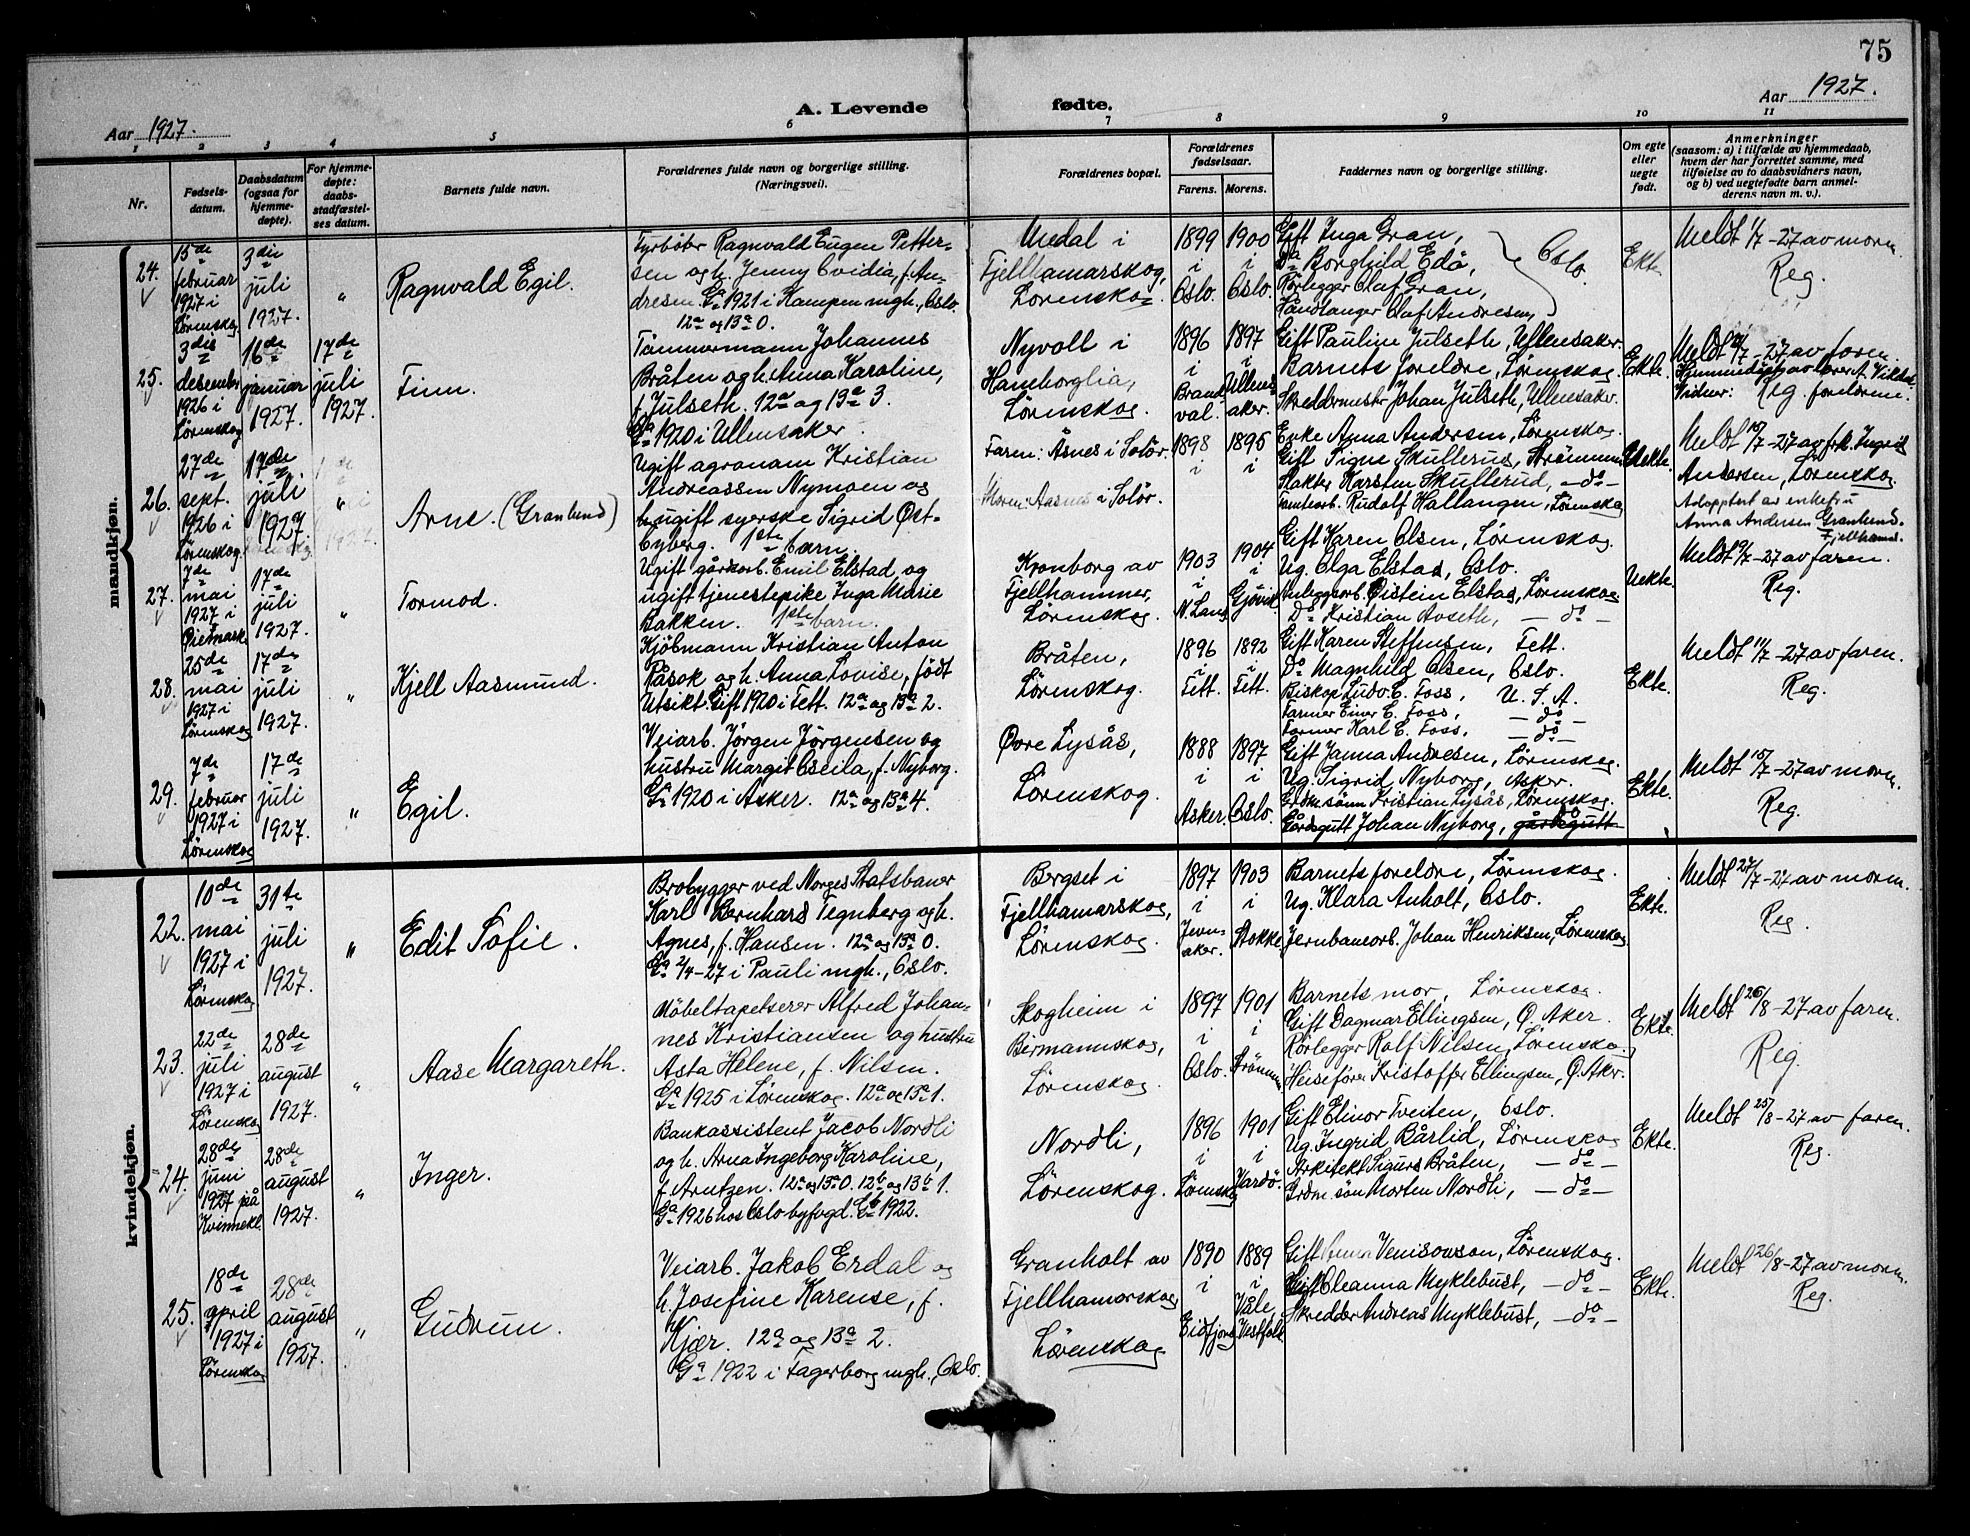 75
A. Levende fødte.
Aar 1927.
Aar 1927.
1 2 3 4 5 6 7 8 9 10 11
Nr.
Fødsels-
datum.
Daabsdatum
(ogsaa for
hjemme-
døpte).
For hjemme-
døpte:
daabs-
stadfæstel-
ses datum.
Barnets fulde navn.
Forældrenes fulde navn og borgerlige stilling.
(Næringsvei).
Forældrenes bopæl.
Forældrenes
fødselsaar.
Farens. Morens.
Faddernes navn og borgerlige stilling.
Om egte
eller
uegte
født.
Anmerkninger
(saasom: a) i tilfælde av hjemmedaab,
hvem der har forrettet samme, med
tilføielse av to daabsvidners navn,
og b) ved uegtefødte barn anmel-
derens navn m. v.).
mandkjøn.
24.
15de
februar
1927 i
Lørenskog
3die
juli
1927.
"
Ragnvald Egil.
Fyrbøter Ragnvald Eugen Petter-
sen og h. Jenny Ovidia, f. An-
dresen. Ga 1921 i Kampen mgh., Oslo.
12a og 13a 0.
Medal i
Fjellhamarskog,
Lørenskog.
1899
i
Oslo.
1900
i
Oslo.
Gift Inga Gran,
Do Borghild Edø,
Rørlegger Olaf Gran,
Håndlanger Olaf Andresen,
Oslo.
Ekte.
Meldt 1/7-27 av moren.
Reg.
25.
3die
desember
1926 i
Lørenskog
16de
januar
1927.
17de
juli
1927.
Finn.
Tømmermann Johannes
Bråten og h. Anna Karoline,
f. Julseth. 12a og 13a 3.
Ga 1920 i Ullensaker.
Nyvoll i
Hamborglia,
Lørenskog.
1896
i
Brand-
val.
1897
i
Ullens-
aker.
Gift Pauline Julseth, Ullensaker.
Barnets foreldre, Lørenskog.
Skreddermester Johan Julseth, Ullensaker.
Ekte.
Meldt /7-27 av faren.
Vidner: Reg. foreldrene.
26.
27de
sept.
1926 i
Lørenskog.
17de
juli
1927.
Arne. (Granlund)
Ugift agronom Kristian
Andreassen Nymoen og
ugift syerske Sigrid Øst-
byberg. 1ste barn.
Faren: Åsnes i Solør.
Moren: Aasnes i Solør.
1898
i
1895
i
Enke Anna Andersen, Lørenskog.
Gift Signe Skullerud, Strømmen
Slakter Karsten Skullerud, - do -
Tomtearb. Rudolf Hallangen, Lørenskog
Uekte.
Meldt 15/7-27 av frk. Ingrid
Andersen, Lørenskog.
Adoptert av enkefru
Anna Andersen Granlund.
Fjellhamar.
27.
7de
mai
1927 i
17de
juli
1927.
"
Tormod.
Ugift gårdsarb. Emil Elstad og
ugift tjenestepike Inga Marie
Bakken. 1ste barn.
Kronborg av
Fjellhammer,
Lørenskog.
1903
i
N. Land
1904
i
Gjøvik
Gift Karen Olsen, Lørenskog.
Ug. Olga Elstad, Oslo.
Anleggsarb. Øistein Elstad, Lørenskog
Do Kristian Aoseth, - do -
Uekte.
Meldt 9/7-27 av faren.
Reg.
28.
25de
mai
1927 i
Lørenskog
17de
juli
1927.
"
Kjell Aasmund.
Kjøbmann Kristian Anton
Råsok og h. Anna Lovise, født
Utsikt. Gift 1920 i Fett. 12a og 13a 2.
Bråten,
Lørenskog.
1896
i
Fett.
1892
i
Fett.
Gift Karen Steffensen, Fett.
Do Magnhild Olsen, Oslo.
Biskop Ludv. E. Foss, U. S. A.
Farmer Einer E. Foss, - do -
Farmer Karl E. Foss, - do -
Ekte.
Meldt 11/7-27 av faren.
Reg.
29.
7de
februar
1927 i
Lørenskog
17de
juli
1927.
"
Egil.
Veiarb. Jørgen Jørgensen og
hustru Margit Oseila, f. Nyborg.
Ga 1920 i Asker. 12a og 13a 4.
Øvre Lysås,
Lørenskog.
1888
i
Asker.
1897
i
Oslo.
Gift Janna Andresen, Lørenskog.
Ug. Sigrid Nyborg, Asker.
Grdm. sønn Kristian Lysås, Lørenskog.
Gårdsgutt Johan Nyborg, gårdsgutt
Ekte.
Meldt 15/7-27 av moren.
Reg.
kvindekjøn.
22.
10de
mai
1927 i
Lørenskog
31te
juli
1927.
"
Edit Sofie.
Brobygger ved Norges Statsbaner
Karl Bernhard Tegnberg og h.
Agnes, f. Hansen. 12a og 13a 0.
Ga 2/4-27 i Pauli mgh., Oslo.
Bergset i
Fjellhamarskog,
Lørenskog.
1897
i
Jevn-
aker.
1903
i
Stokke
Barnets foreldre, Lørenskog.
Ug. Klara Anholt, Oslo.
Jernbanearb. Johan Henriksen, Lørenskog
Ekte.
Meldt 27/7-27 av moren.
Reg.
23.
22de
juli
1927 i
Lørenskog
28de
august
1927.
"
Aase Margareth.
Møbeltapetserer Alfred Johan-
nes Kristiansen og hustru
Asta Helene, f. Nilsen.
Ga 1925 i Lørenskog. 12a og 13a 1.
Skogheim i
Birmannskog,
Lørenskog.
1897
i
Oslo.
1901
i
Strømmen
Barnets mor, Lørenskog.
Gift Dagmar Ellingsen, Ø. Aker.
Rørlegger Rolf Nilsen, Lørenskog
Heisefører Kristoffer Ellingsen, Ø. Aker.
Ekte.
Meldt 26/8-27 av faren.
Reg.
24.
28de
juni
1927 på
Kvinnekl.
28de
august
1927.
"
Inger.
Bankassistent Jacob Nordli
og h. Arna Ingeborg Karoline,
f. Arntzen. 12a og 13a 0. 12b og 13b 1.
Ga 1926 hos Oslo byfogd. Gb 1922.
Nordli,
Lørenskog.
1896
i
Lørenskog
1901
i
Vardø.
Gift Elinor Tveiten, Oslo.
Ug. Ingrid Bårlid, Lørenskog
Arkitekt Sigurd Bråten, - do -
Grdm. søn Morten Nordli, - do -
Ekte.
Meldt 25/8-27 av faren.
Reg.
25.
18de
april
1927 i
Lørenskog
28de
august
1927.
"
Gudrun.
Veiarb. Jakob Erdal og
h. Josefine Karense, f.
Kjær. 12a og 13a 2.
Ga 1922 i Fagerborg mgh., Oslo.
Granholt av
Fjellhamarskog
Lørenskog
1890
i
Eidfjord
1889
i
Våle,
Vestfold
Gift Anna Venisonson, Lørenskog.
Gift Oleanna Myklebust, - do -
Skredder Andreas Myklebust, - do -
Ekte.
Meldt 26/8-27 av moren.
Reg.